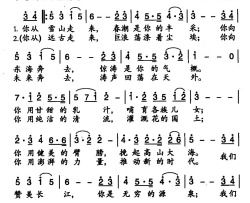 3 4 5 3 1 5 | 6 - - 2 3 | 4 5·5 4·3 | 3 - - 3 4
1.你从 雪山走 来, 春潮是 你的 丰 采; 你向
2.(你从) 远古走 来, 巨浪荡涤着 尘 埃; 你向
5 3 1 5 | 6 - - 2 3 | 4 5·5 3·2 | 1 - - 0
东海奔 去, 惊涛是 你的 气 概。
未来奔 去, 涛声回荡在 天 外。
你用甘甜 的乳 汁, 哺育各族儿 女;
你用纯洁 的清 流, 灌溉花的国 土;
你用健美 的臂 膀, 挽起高山大 海。 我们
你用 的力 量, 推动新的时 代。
5 3 1 5 | 6 - - 2 3 | 4 5·5 4·3 | 3 - - 3 4
赞美长 江, 你是 无穷的源 泉; 我们